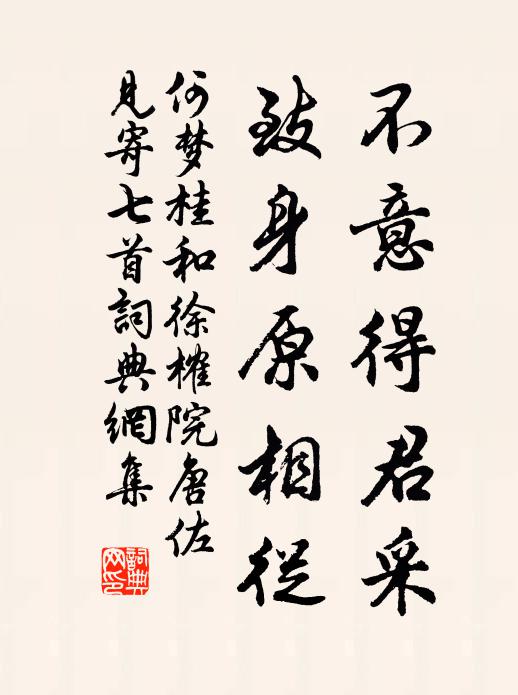 不意得君采
致身原相從
何梦桂和徐榷院唐佐
見寄七首詞典網集
詞典
网印